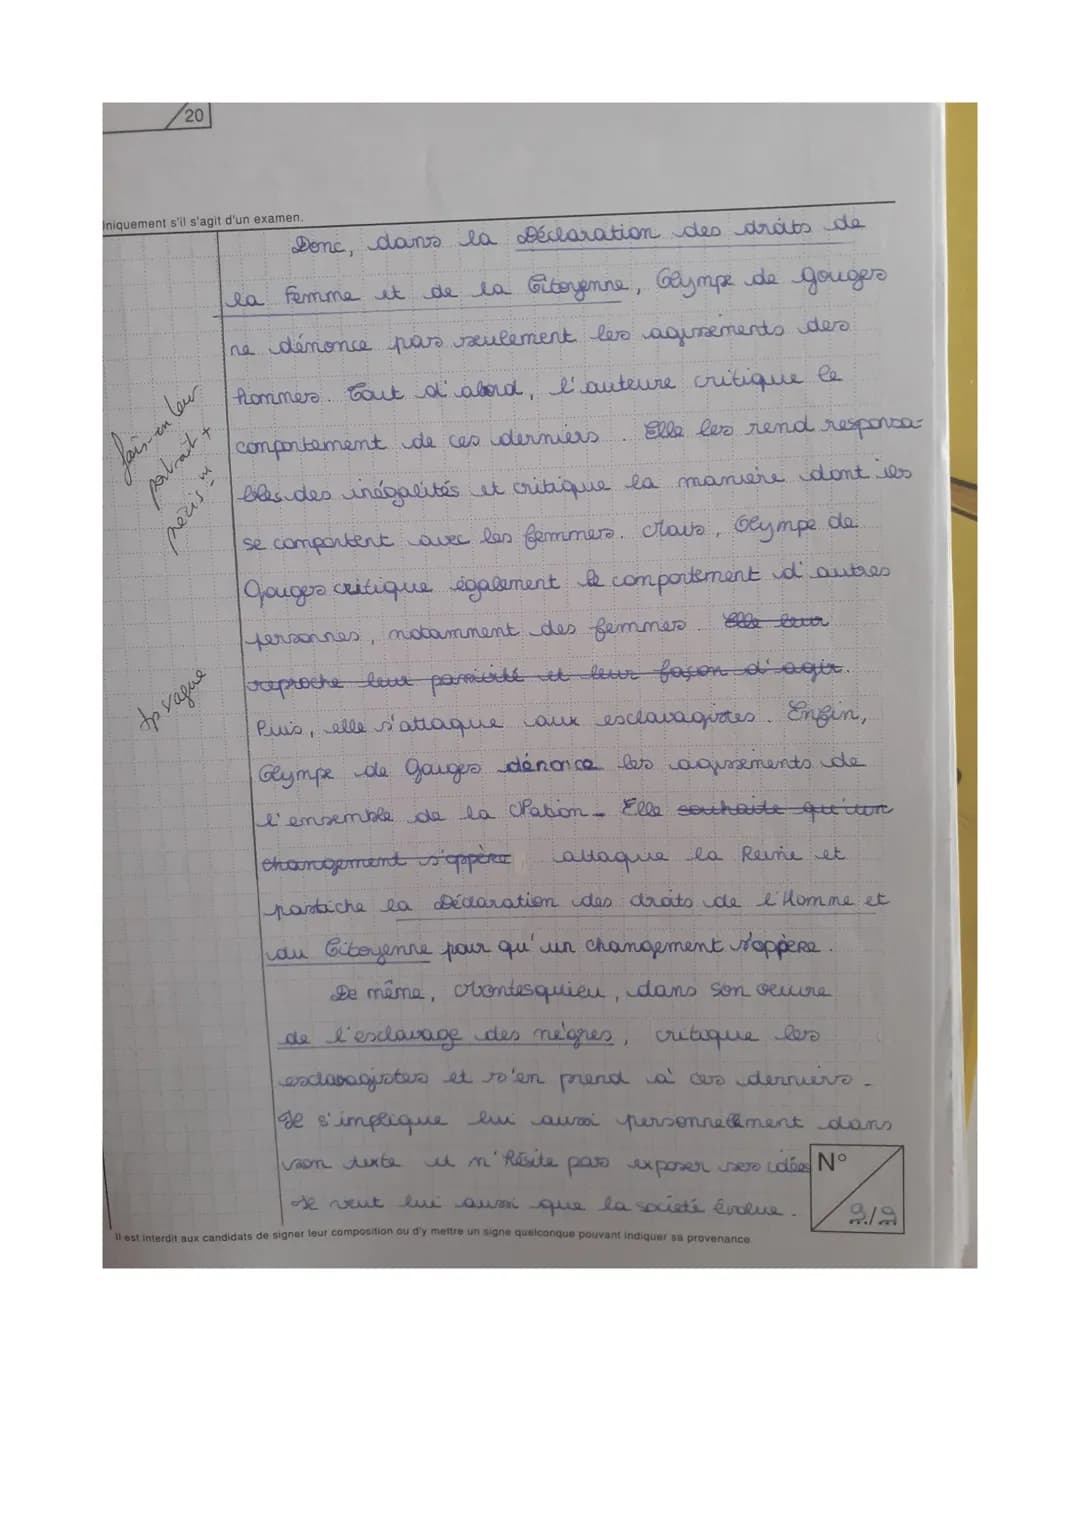 /20
Uniquement s'il s'agit d'un examen.
Donc, dans la Déclaration des droits de
la Femme et de la Citoyenne, Olympe de Gouges
ne dénonce pas seulement les agissements des
hommes. Tout d'abord, l'auteure critique le
comportement de ces derniers. Elle les rend responsa-
bles des inégalités et critique la manière dont ils
se comportent avec les femmes. Mais, Olympe de
Gouges critique également le comportement d'autres
personnes, notamment des femmes. Elle leur
reproche leur passivité et leur façon d'agir.
Puis, elle s'attaque aux esclavagistes. Enfin,
Olympe de Gouges dénonce les agissements de
l'ensemble de la Nation. Elle souhaite qu'un
changement s'oppère attaque la Reine et
pastiche la Déclaration des droits de l'Homme et
du Citoyenne pour qu'un changement s'oppère.
De même, Montesquieu, dans son oeuvre
de l'esclavage des nègres, critique les
esclavagistes et s'en prend à ces derniers.
Il s'implique lui aussi personnellement dans
son texte et n'hésite pas exposer ses idées
Il veut lui aussi que la société évolue.
fais-en leur
portrait +
précis"
tp vague
N°
9/9
Il est interdit aux candidats de signer leur composition ou d'y mettre un signe quelconque pouvant indiquer sa provenance.